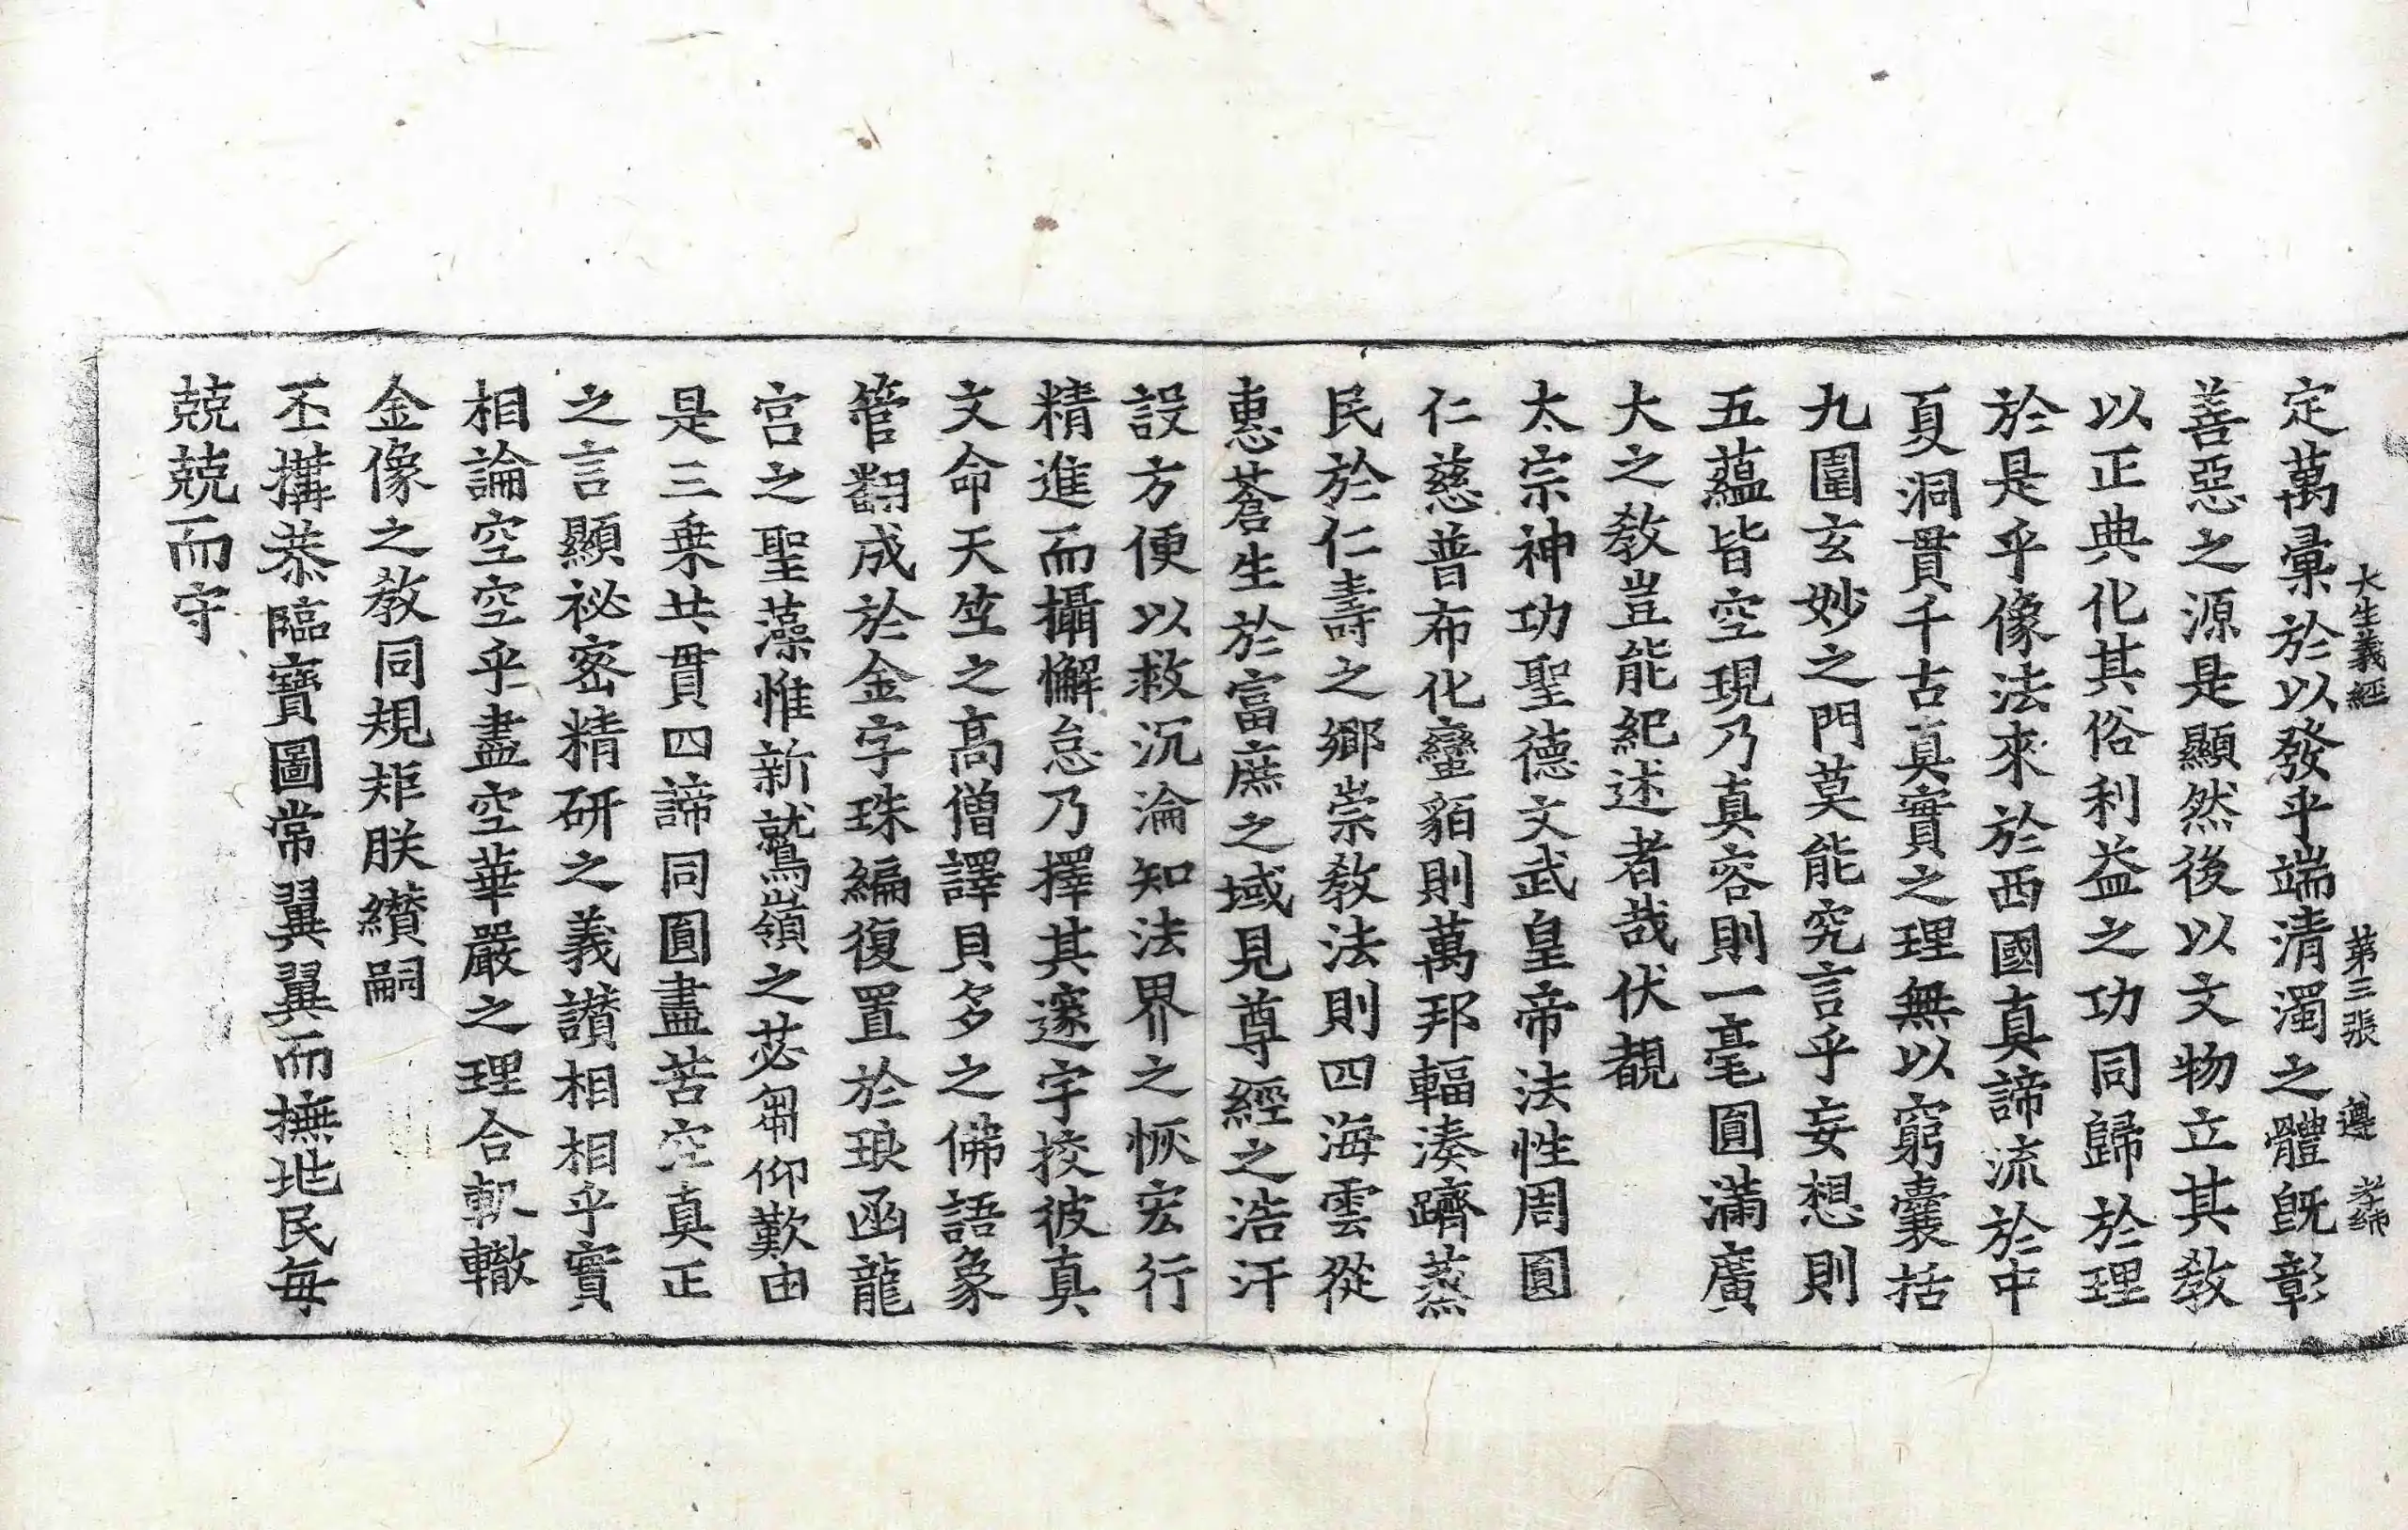 大生義經 第三張 遵 孝緣
定萬彙於以發乎端清濁之體旣彰
善惡之源是顯然後以文物立其敎
以正典化其俗利益之功同歸於理
於是乎像法來於西國真諦流於中
夏洞貫千古真實之理無以窮囊括
九圍玄妙之門莫能究言乎妄想則
五蘊皆空現乃真容則一毫圓滿廣
大之敎豈能紀述者哉伏覩
太宗神功聖德文武皇帝法性周圓
仁慈普布化蠻貊則萬邦輻湊躋蒸
民於仁壽之鄉崇敎法則四海雲從
惠蒼生於富庶之域見尊經之浩汗
設方便以救沉淪知法界之恢宏行
精進而攝懈怠乃擇其邃宇挍彼真
文命天竺之高僧譯貝多之佛語象
管翻成於金字珠編復置於琅函龍
宮之聖藻惟新鷲嶺之苾蒭仰歎由
是三乘共貫四諦同圓盡苦空真正
之言顯祕密精研之義讃相相乎實
相論空空乎盡空華嚴之理合軌轍
金像之敎同規矩朕纘嗣
丕搆恭臨寶圖常翼翼而撫地民每
兢兢而守